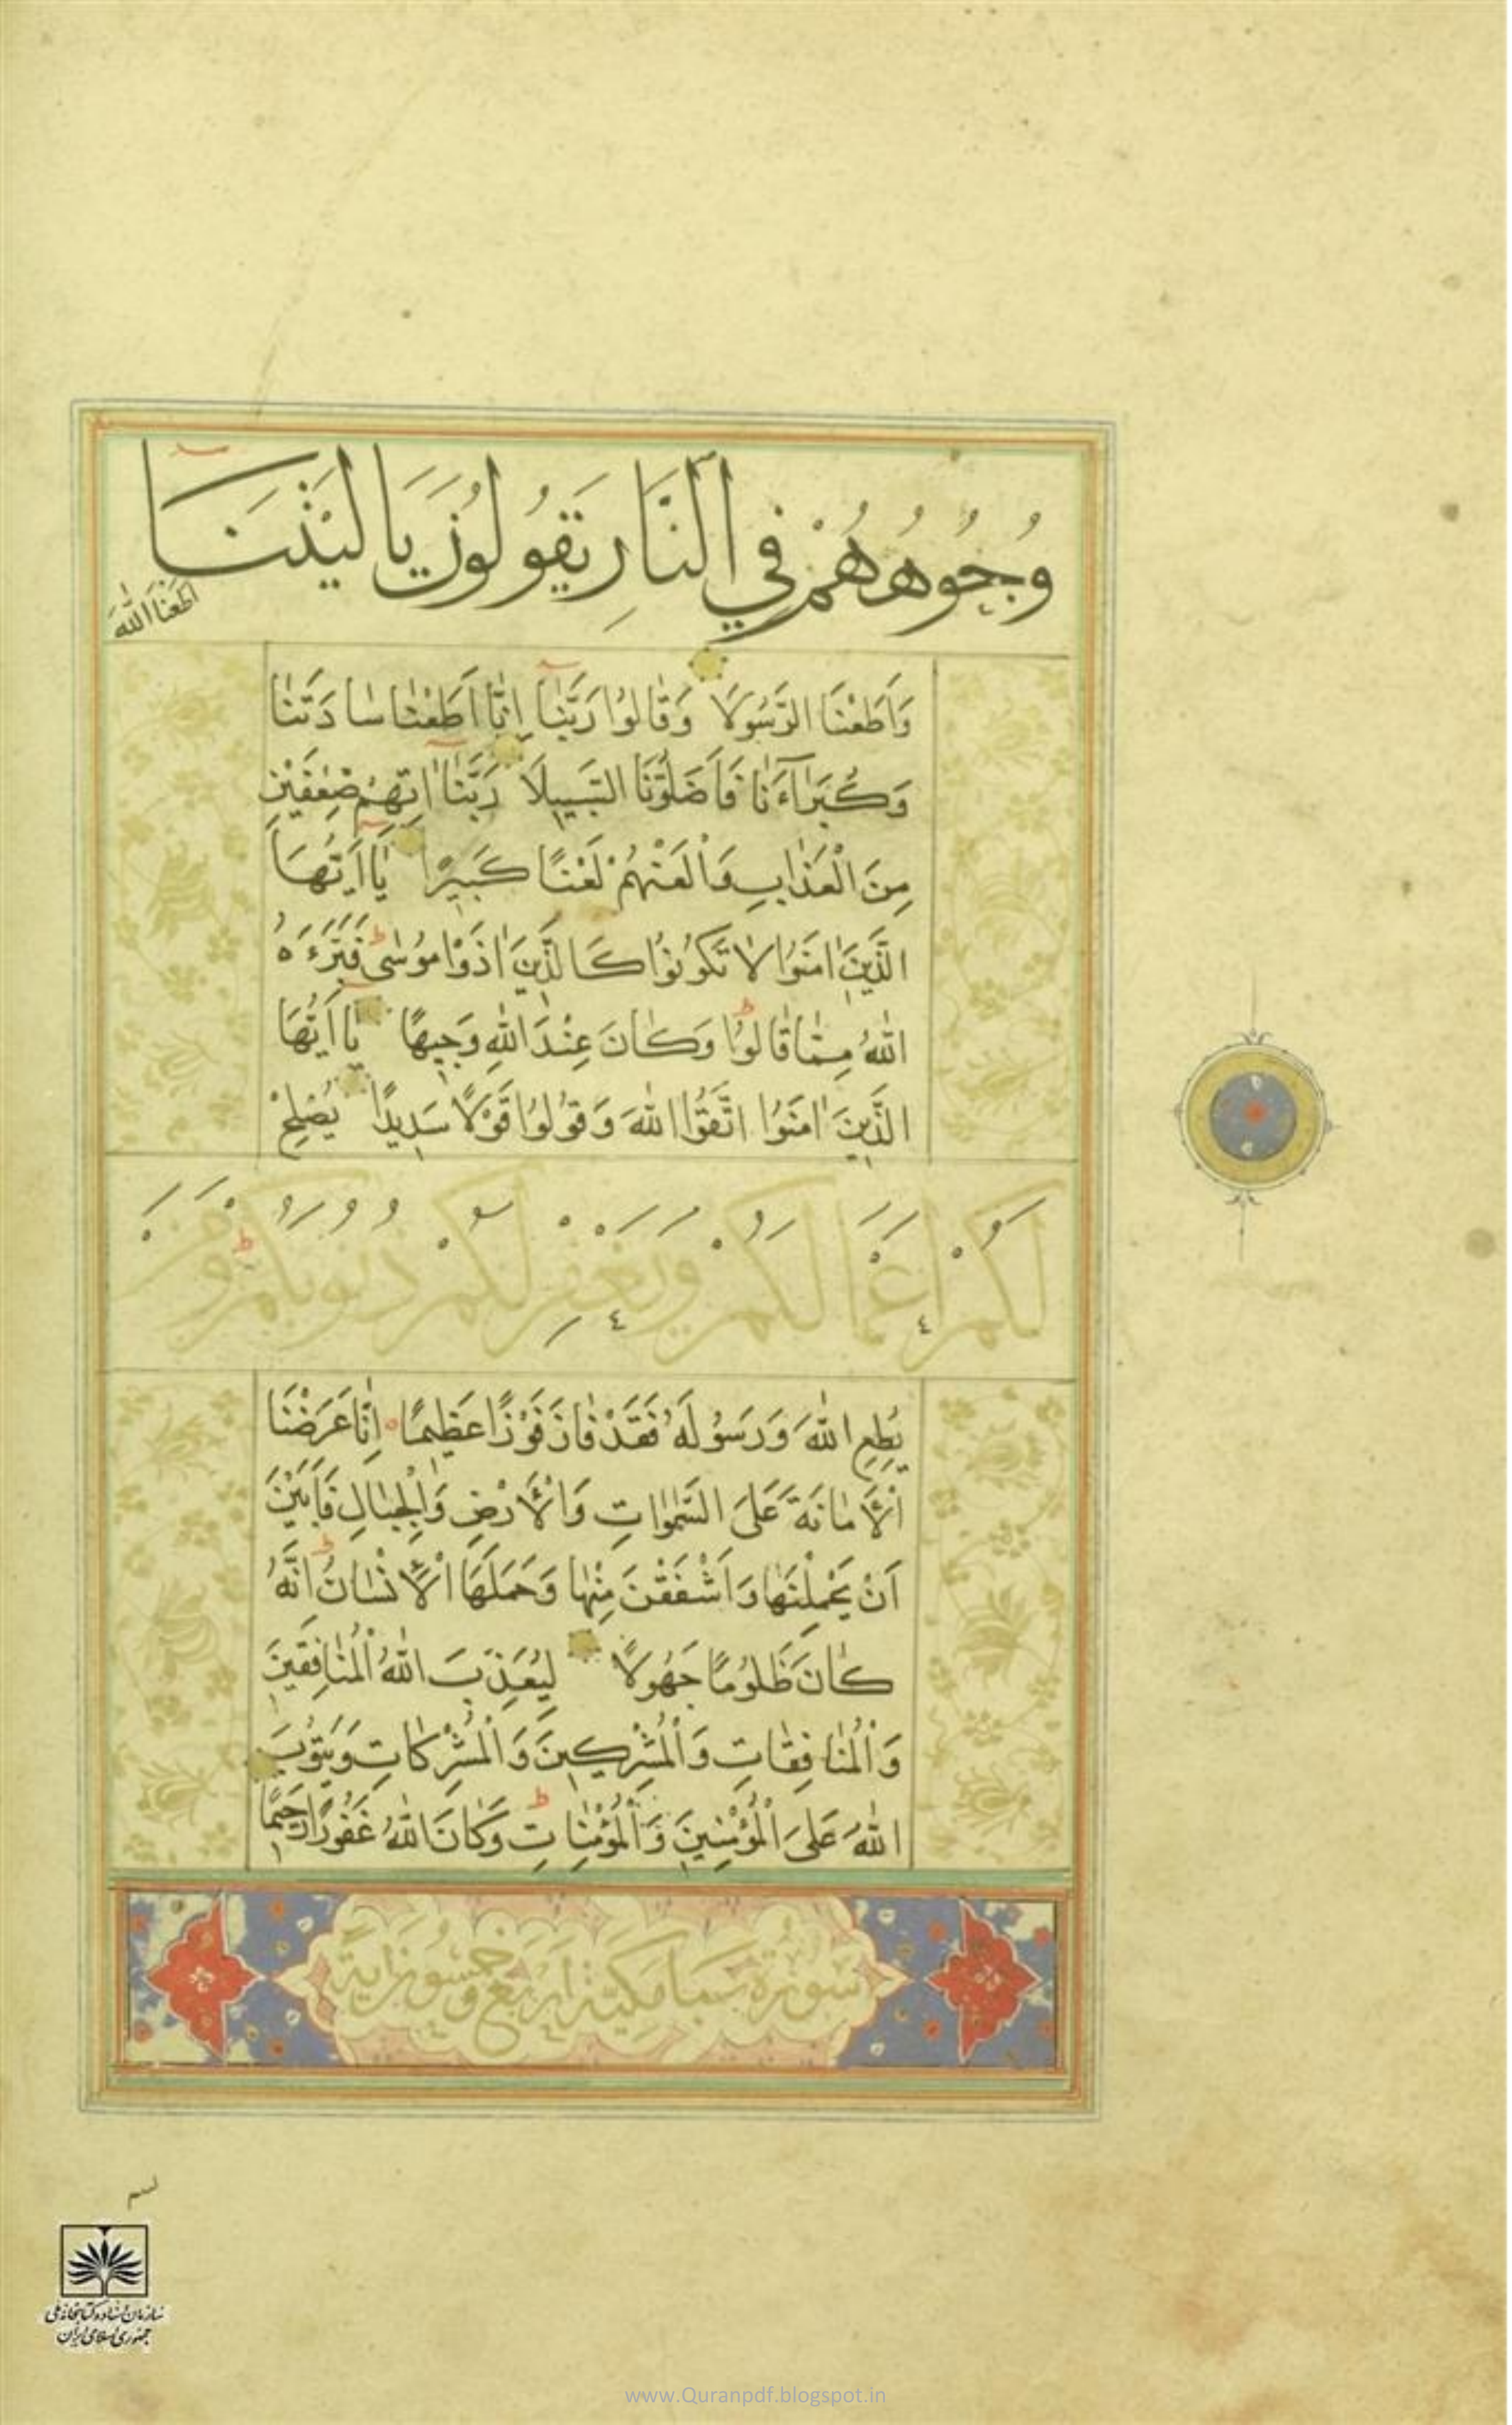 وُجُوهُهُمْ فِي النَّارِ يَقُولُونَ يَا لَيْتَنَا
اَطَعْنَا اللّٰهَ
وَاَطَعْنَا الرَّسُولَا وَقَالُوا رَبَّنَا اِنَّا اَطَعْنَا سَادَتَنَا
وَكُبَرَاءَنَا فَاَضَلُّونَا السَّبِيلَا رَبَّنَا اٰتِهِمْ ضِعْفَيْنِ
مِنَ الْعَذَابِ وَالْعَنْهُمْ لَعْنًا كَبِيرًا يَا اَيُّهَا
الَّذِينَ اٰمَنُوا لَا تَكُونُوا كَالَّذِينَ اٰذَوْا مُوسٰى فَبَرَّءَهُ
اللّٰهُ مِمَّا قَالُوا وَكَانَ عِنْدَ اللّٰهِ وَجِيهًا يَا اَيُّهَا
الَّذِينَ اٰمَنُوا اتَّقُوا اللّٰهَ وَقُولُوا قَوْلًا سَدِيدًا يُصْلِحْ
لَكُمْ اَعْمَالَكُمْ وَيَغْفِرْ لَكُمْ ذُنُوبَكُمْ وَمَنْ
يُطِعِ اللّٰهَ وَرَسُولَهُ فَقَدْ فَازَ فَوْزًا عَظِيمًا اِنَّا عَرَضْنَا
الْاَمَانَةَ عَلَى السَّمٰوَاتِ وَالْاَرْضِ وَالْجِبَالِ فَاَبَيْنَ
اَنْ يَحْمِلْنَهَا وَاَشْفَقْنَ مِنْهَا وَحَمَلَهَا الْاِنْسَانُ اِنَّهُ
كَانَ ظَلُومًا جَهُولًا لِيُعَذِّبَ اللّٰهُ الْمُنَافِقِينَ
وَالْمُنَافِقَاتِ وَالْمُشْرِكِينَ وَالْمُشْرِكَاتِ وَيَتُوبَ
اللّٰهُ عَلَى الْمُؤْمِنِينَ وَالْمُؤْمِنَاتِ وَكَانَ اللّٰهُ غَفُورًا رَحِيمًا
سورة سبا مكية اربع وخمسون اية
بسم
سازمان اسناد و کتابخانه ملی
جمهوری اسلامی ایران
www.Quranpdf.blogspot.in